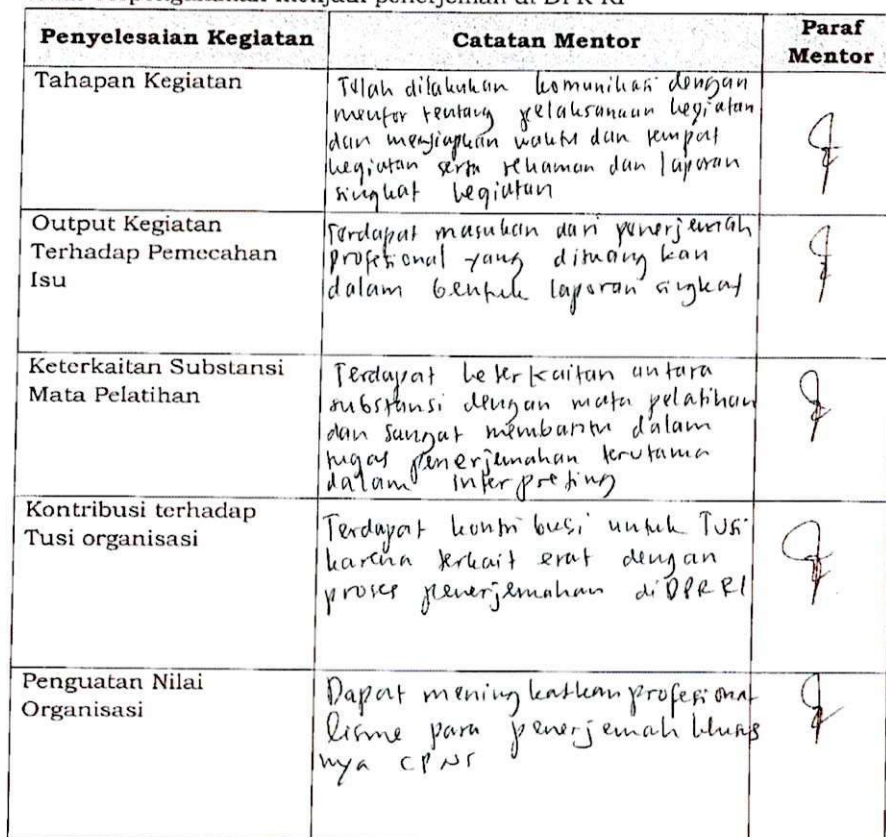 menjadi penerjemah di DPR RI
Penyelesaian Kegiatan
Catatan Mentor
Paraf
Mentor
Tahapan Kegiatan
Telah dilakukan komunikasi dengan
mentor tentang pelaksanaan kegiatan
dan menyiapkan waktu dan tempat
kegiatan serta rekaman dan laporan
singkat kegiatan
Output Kegiatan
Terhadap Pemecahan
Isu
Terdapat masukan dari penerjemah
profesional yang dituangkan
dalam bentuk laporan singkat
Keterkaitan Substansi
Mata Pelatihan
Terdapat keterkaitan antara
substansi dengan mata pelatihan
dan sangat membantu dalam
tugas penerjemahan terutama
dalam interpreting
Kontribusi terhadap
Tusi organisasi
Terdapat kontribusi untuk Tusi
karena terkait erat dengan
proses penerjemahan di DPR RI
Penguatan Nilai
Organisasi
Dapat meningkatkan profesional
lisme para penerjemah khusus
nya CPNS